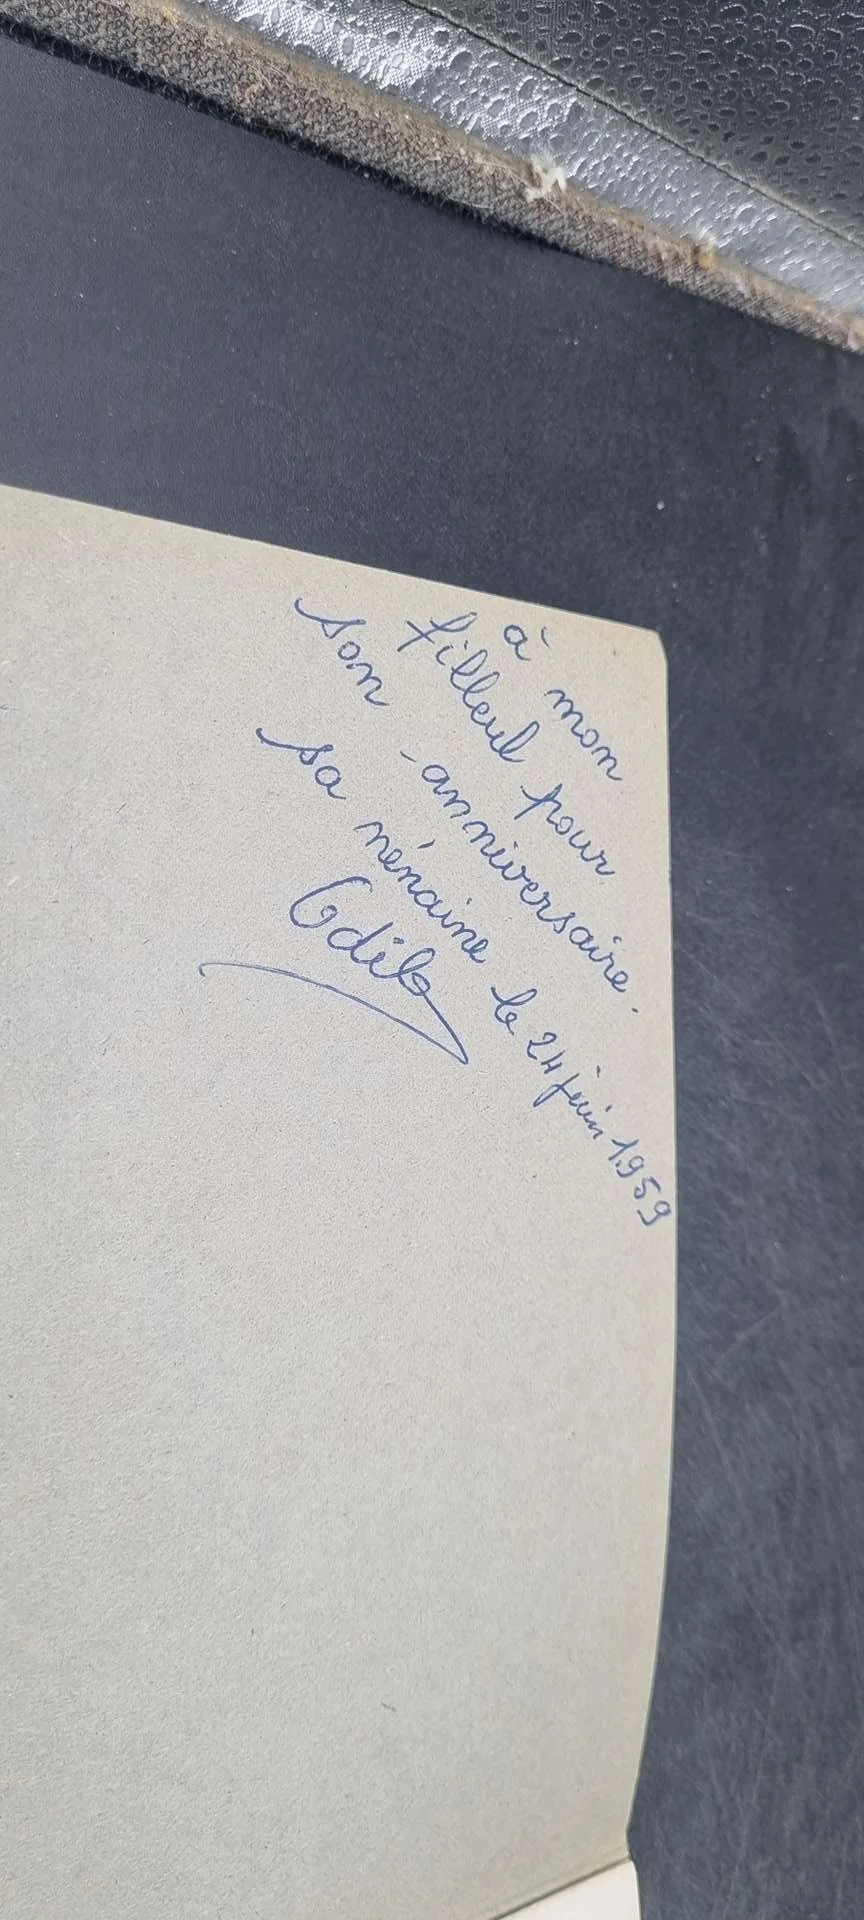 à mon
filleul pour
son anniversaire.
sa nénaine le 24 juin 1959
Odile